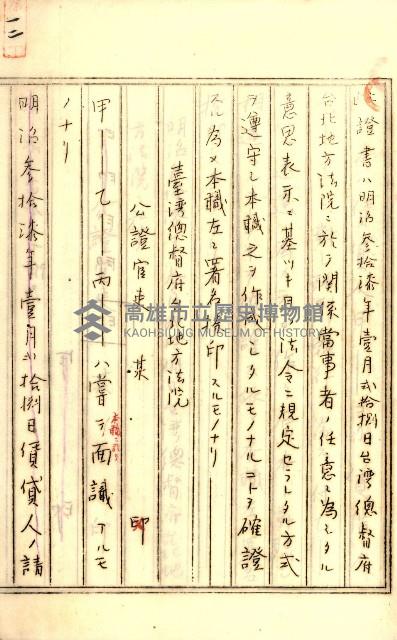 一二
證書ハ明治參拾漆年壹月貳拾捌日台湾總督府
台北地方法院ニ於テ関係當事者ノ任意ニ為シタル
意思表示ニ基ツキ且法令ニ規定セラレタル方式
ヲ遵守シ本職之ヲ作成シタルモノナルコトヲ確證
スル為メ本職左ニ署名捺印スルモノナリ
臺湾總督府台北地方法院
公證官吏 某 印
甲 乙 丙 ハ嘗テ面識アルモ
ノナリ
明治參拾漆年壹月貳拾捌日賃貸人ノ請
高雄市立歷史博物館
KAOHSIUNG MUSEUM OF HISTORY